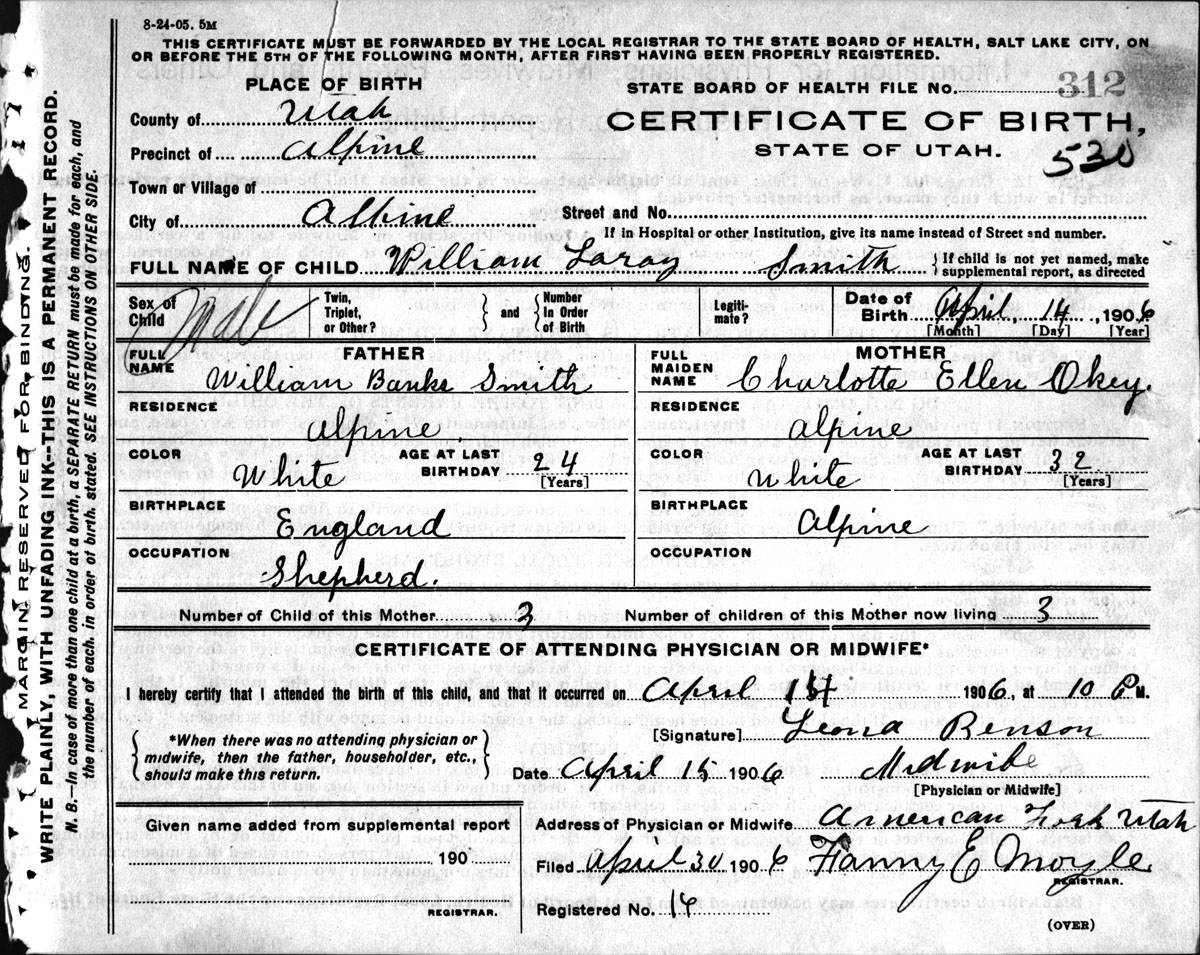 8-24-05. 5M
THIS CERTIFICATE MUST BE FORWARDED BY THE LOCAL REGISTRAR TO THE STATE BOARD OF HEALTH, SALT LAKE CITY, ON
OR BEFORE THE 5TH OF THE FOLLOWING MONTH, AFTER FIRST HAVING BEEN PROPERLY REGISTERED.
PLACE OF BIRTH
STATE BOARD OF HEALTH FILE No. 312
County of Utah
CERTIFICATE OF BIRTH,
Precinct of Alpine
STATE OF UTAH.
530
Town or Village of
City of Alpine
Street and No.
If in Hospital or other Institution, give its name instead of Street and number.
FULL NAME OF CHILD William Laray Smith {If child is not yet named, make supplemental report, as directed
Sex of Child Male
Twin, Triplet, or Other? } and { Number In Order of Birth
Legiti-mate?
Date of Birth April 14, 1906
[Month] [Day] [Year]
FATHER
MOTHER
FULL NAME William Banks Smith
FULL MAIDEN NAME Charlotte Ellen Okey.
RESIDENCE Alpine.
RESIDENCE Alpine
COLOR White AGE AT LAST BIRTHDAY 24 [Years]
COLOR White AGE AT LAST BIRTHDAY 32 [Years]
BIRTHPLACE England
BIRTHPLACE Alpine
OCCUPATION Shepherd.
OCCUPATION
Number of Child of this Mother 3 Number of children of this Mother now living 3
CERTIFICATE OF ATTENDING PHYSICIAN OR MIDWIFE*
I hereby certify that I attended the birth of this child, and that it occurred on April 14 1906, at 10 P M.
{*When there was no attending physician or midwife, then the father, householder, etc., should make this return.}
[Signature] Leona Benson
Date April 15 1906 Midwife
[Physician or Midwife]
Given name added from supplemental report
190
REGISTRAR.
Address of Physician or Midwife American Fork Utah
Filed April 30 1906 Fanny E Moyle
REGISTRAR.
Registered No. 14
(OVER)
MARGIN RESERVED FOR BINDING.
WRITE PLAINLY, WITH UNFADING INK--THIS IS A PERMANENT RECORD.
N. B.--In case of more than one child at a birth, a SEPARATE RETURN must be made for each, and
the number of each, in order of birth, stated. SEE INSTRUCTIONS ON OTHER SIDE.